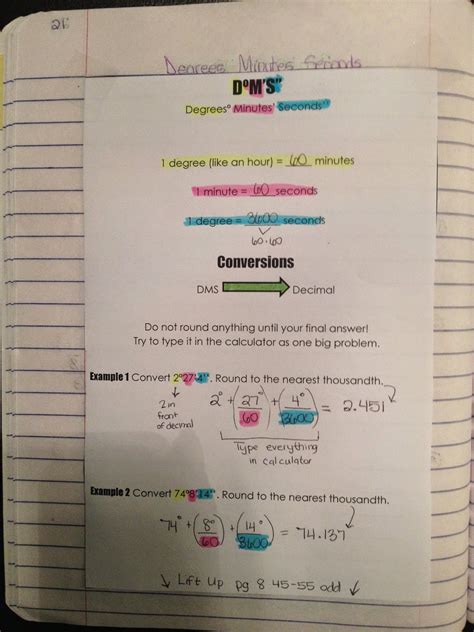 21
Degrees Minutes Seconds
D°M'S"
Degrees° Minutes' Seconds"
1 degree (like an hour) = 60 minutes
1 minute = 60 seconds
1 degree = 3600 seconds
60·60
Conversions
DMS Decimal
Do not round anything until your final answer!
Try to type it in the calculator as one big problem.
Example 1 Convert 2°27'4". Round to the nearest thousandth.
2 in
front
of decimal
2° + (27°/60) + (4°/3600) = 2.451
Type everything
in calculator
Example 2 Convert 74°8'14". Round to the nearest thousandth.
74° + (8°/60) + (14°/3600) = 74.137
Lift Up pg 8 45-55 odd